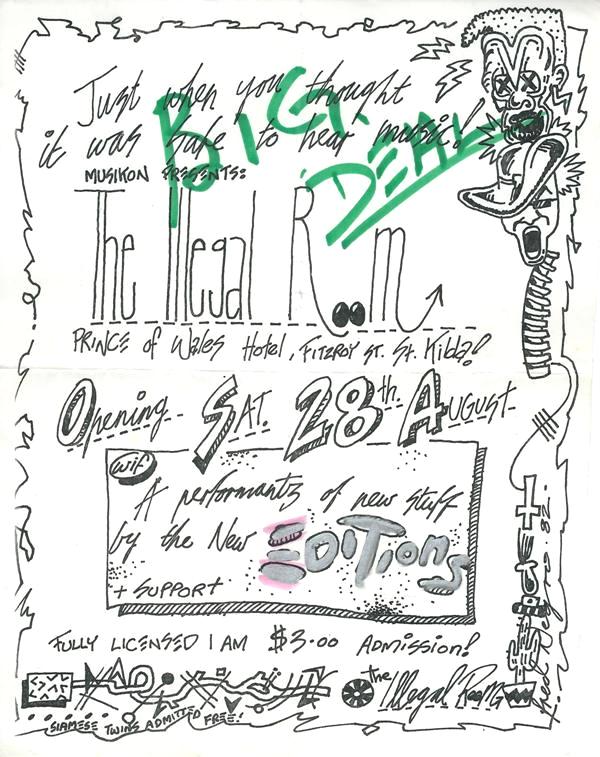 Just when you thought
it was safe to hear music!
BIG
DEAL
MUSIKON PRESENTS:
The Illegal Room
PRINCE of Wales Hotel, FITZROY ST. St. Kilda!
Opening SAT. 28th. AUGUST
wif
A performantz of new stuff
by the New EDITIONS
+ SUPPORT
FULLY LICENSED 1 AM $3.00 ADMISSION!
the Illegal Room
SIAMESE TWINS ADMITTED FREE!
82.